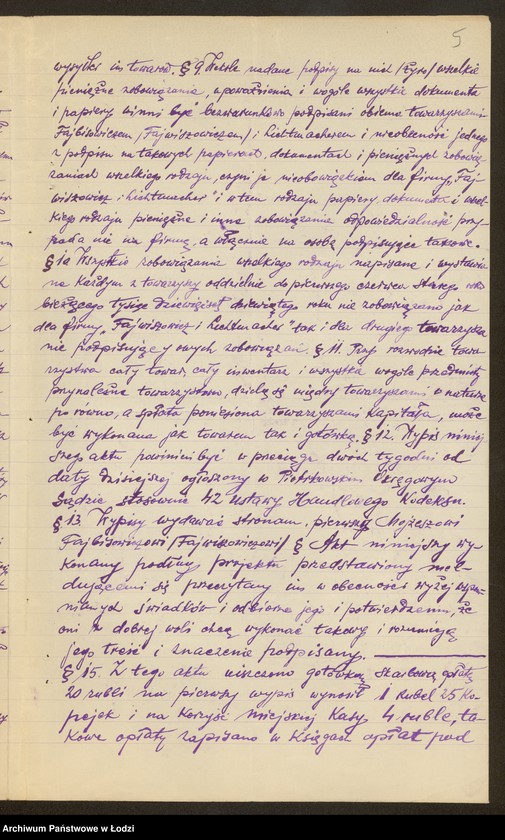 5
wysyłki im towarów. § 9 Weksle nadane podpisy na nich /żyro/ wszelkie
pieniężne zobowiązania, upoważnienia i wogóle wszystkie dokumenta
i papiery winni być bezwarunkowo podpisani obiema towarzyszami
Fajbisiowiczem /Fajwiszowiczem/ i Lichtmacherem i nieobecność jednego
z podpisu na takowych papierach, dokumentach i pieniężnych zobowią-
zaniach wszelkiego rodzaju, czyni je nieobowiązkiem dla firmy „Faj-
wiszowicz i Lichtmacher" i w tem rodzaju papiery dokumenta i wszel-
kiego rodzaju pieniężne i inne zobowiązania odpowiedzialność przy-
pada nie na firmę, a włącznie na osobę podpisujące takowe.
§ 10 Wszystkie zobowiązania wszelkiego rodzaju napisane i wystawio-
ne każdym z towarzyszy oddzielnie do pierwszego czerwca starego roku
bieżącego tysiąc dziewięćset dziewiątego roku nie zobowiązano jak
dla firmy „Fajwiszowicz i Lichtmacher" tak i dla drugiego towarzysza
nie podpisującego owych zobowiązań. § 11. Przy rozwodzie towa-
rzystwa cały towar, cały inwentarz i wszystka wogóle przedmioty
przynależne towarzystwu, dzielą się między towarzyszami w naturze
po równo, a spłata poniesiona towarzyszami kapitała, może
być wykonana jak towarem tak i gotówką. § 12. Wypis niniej
szego aktu powinien być w przeciągu dwóch tygodni od
daty dzisiejszej ogłoszony w Piotrkowskim Okręgowym
Sądzie stosownie 42 ustawy Handlowego Kodeksu.
§ 13. Wypisy wydawać stronom, pierwszy Mojżeszowi
Fajbisiowiczowi /Fajwiszowiczowi/ § Akt niniejszy wy-
konany podług projektu przedstawiony znaj-
dującemi się przeczytany im w obecności wyżej wspom-
nianych świadków i odbiorne jego i potwierdzeniu, że
oni z dobrej woli chcą wykonać takowy i rozumieją
jego treść i znaczenie podpisany.
§ 15. Z tego aktu uiszczono gotówką skarbową opłatę
20 rubli na pierwszy wypis wynosił 1 rubel 25 ko-
pejek i na korzyść miejskiej kasy 4 ruble, ta-
kowe opłaty zapisano w księgach opłat pod
Archiwum Państwowe w Łodzi